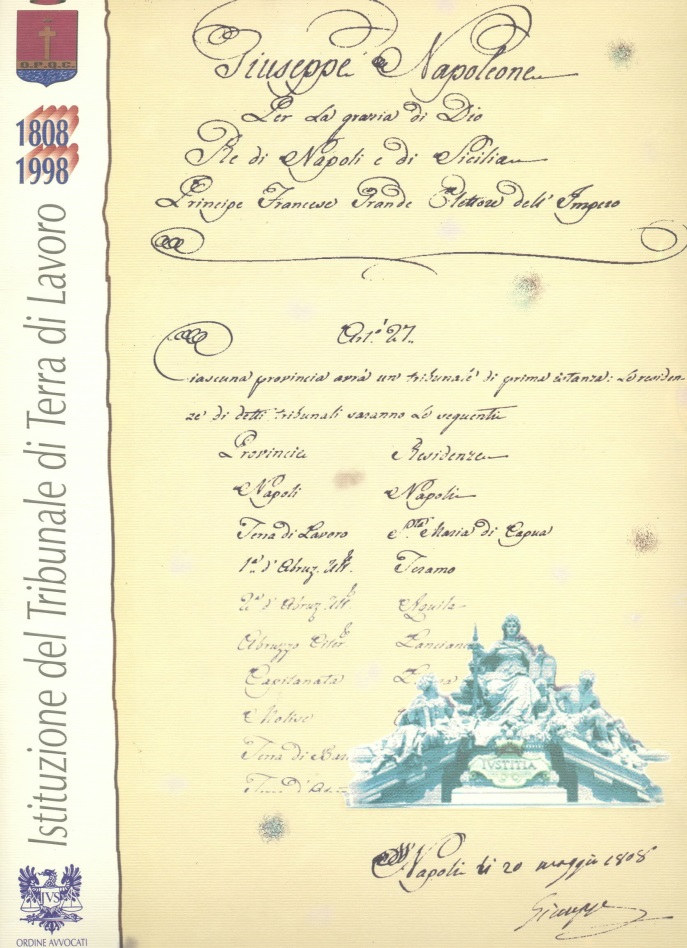 O.P.Q.C.
1808
1998
Istituzione del Tribunale di Terra di Lavoro
JVS
ORDINE AVVOCATI
Giuseppe Napoleone
Per la grazia di Dio
Re di Napoli e di Sicilia
Principe Francese Grande Elettore dell' Impero
Art.º 27.
Ciascuna provincia avrà un tribunale di prima istanza: Le residen-
ze di detti tribunali saranno le seguenti
Provincie Residenze
Napoli Napoli
Terra di Lavoro S.ta Maria di Capua
1.a d'Abruz. Ult. Teramo
2.a d'Abruz. Ult. Aquila
Abruzzo Citer Lanciano
Capitanata
Molise
Terra di Bari
IVSTITIA
Napoli li 20 maggio 1808
Giuseppe